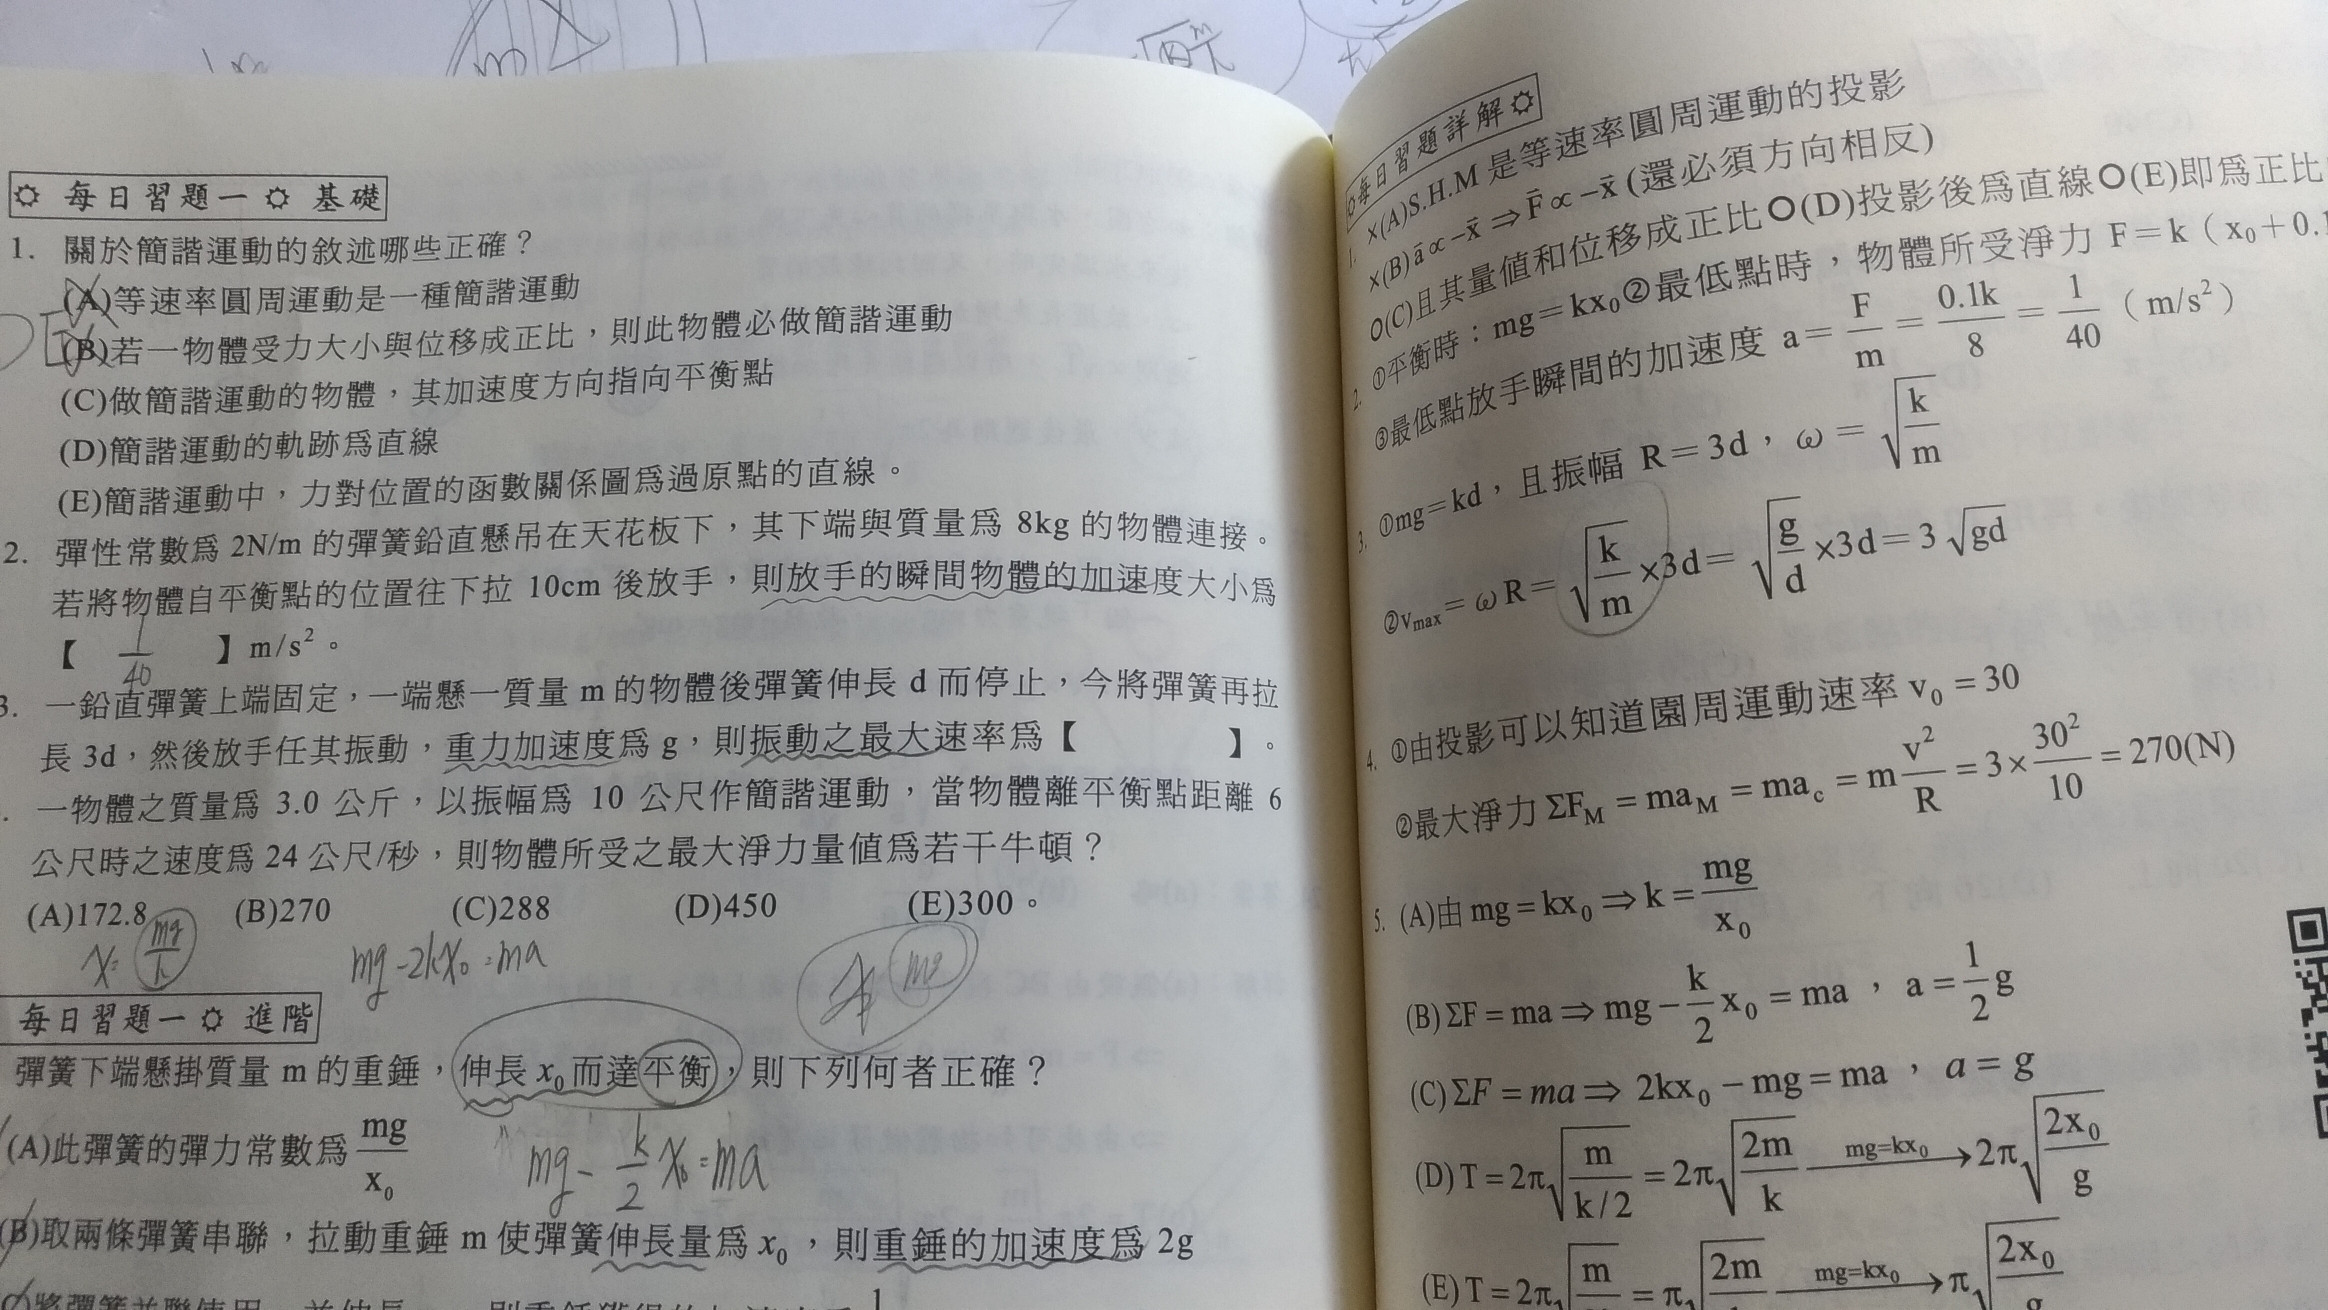 ✡ 每日習題一 ✡ 基礎
1. 關於簡諧運動的敘述哪些正確？
(A)等速率圓周運動是一種簡諧運動
(B)若一物體受力大小與位移成正比，則此物體必做簡諧運動
(C)做簡諧運動的物體，其加速度方向指向平衡點
(D)簡諧運動的軌跡爲直線
(E)簡諧運動中，力對位置的函數關係圖爲過原點的直線。
2. 彈性常數爲 2N/m 的彈簧鉛直懸吊在天花板下，其下端與質量爲 8kg 的物體連接。
若將物體自平衡點的位置往下拉 10cm 後放手，則放手的瞬間物體的加速度大小爲
【 1/40 】m/s²。
3. 一鉛直彈簧上端固定，一端懸一質量 m 的物體後彈簧伸長 d 而停止，今將彈簧再拉
長 3d，然後放手任其振動，重力加速度爲 g，則振動之最大速率爲【 】。
. 一物體之質量爲 3.0 公斤，以振幅爲 10 公尺作簡諧運動，當物體離平衡點距離 6
公尺時之速度爲 24 公尺/秒，則物體所受之最大淨力量值爲若干牛頓？
(A)172.8 (B)270 (C)288 (D)450 (E)300。
x= mg/k mg-2kx₀=ma mg
每日習題一 ✡ 進階
彈簧下端懸掛質量 m 的重錘，伸長 x₀ 而達平衡，則下列何者正確？
(A)此彈簧的彈力常數爲 mg/x₀
mg- k/2 x₀=ma
(B)取兩條彈簧串聯，拉動重錘 m 使彈簧伸長量爲 x₀，則重錘的加速度爲 2g
✡每日習題詳解✡
1. ×(A)S.H.M 是等速率圓周運動的投影
×(B)a⃗∝−x⃗⇒F⃗∝−x⃗(還必須方向相反)
○(C)且其量值和位移成正比○(D)投影後爲直線○(E)即爲正比
2. ①平衡時：mg＝kx₀②最低點時，物體所受淨力 F＝k（x₀＋0.1
③最低點放手瞬間的加速度 a＝F/m＝0.1k/8＝1/40（m/s²）
3. ①mg＝kd，且振幅 R＝3d，ω＝√(k/m)
②vmax＝ωR＝√(k/m)×3d＝√(g/d)×3d＝3√gd
4. ①由投影可以知道園周運動速率 v₀＝30
②最大淨力 ΣF_M＝ma_M＝ma_c＝m v²/R＝3×30²/10＝270(N)
5. (A)由 mg＝kx₀⇒k＝mg/x₀
(B)ΣF＝ma⇒mg−k/2 x₀＝ma，a＝1/2 g
(C)ΣF＝ma⇒2kx₀−mg＝ma，a＝g
(D)T＝2π√(m/(k/2))＝2π√(2m/k) mg=kx₀→2π√(2x₀/g)
(E)T＝2π√(m ＝π√(2m mg=kx₀→π√(2x₀/g)